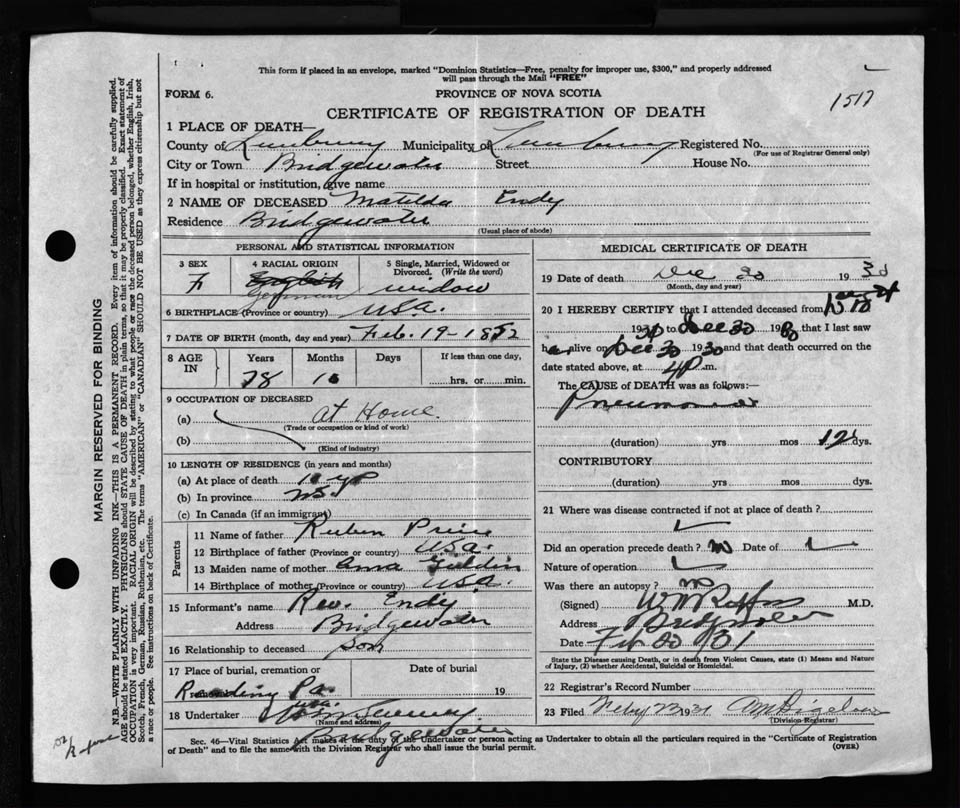 This form if placed in an envelope, marked "Dominion Statistics—Free, penalty for improper use, $300," and properly addressed
will pass through the Mail "FREE"
FORM 6.
PROVINCE OF NOVA SCOTIA
1517
CERTIFICATE OF REGISTRATION OF DEATH
1 PLACE OF DEATH—
County of Lunenburg Municipality of Lunenburg Registered No.
(For use of Registrar General only)
City or Town Bridgewater Street House No.
If in hospital or institution, give name
2 NAME OF DECEASED Matilda Endy
Residence Bridgewater
(Usual place of abode)
PERSONAL AND STATISTICAL INFORMATION
3 SEX
F
4 RACIAL ORIGIN
English
German
5 Single, Married, Widowed or
Divorced. (Write the word)
widow
6 BIRTHPLACE (Province or country) USA.
7 DATE OF BIRTH (month, day and year) Feb. 19-1852
8 AGE
IN
Years Months Days If less than one day,
78 10 hrs. or min.
9 OCCUPATION OF DECEASED
(a) at Home.
(Trade or occupation or kind of work)
(b)
(Kind of industry)
10 LENGTH OF RESIDENCE (in years and months)
(a) At place of death
(b) In province NS
(c) In Canada (if an immigrant)
Parents
11 Name of father Ruben
12 Birthplace of father (Province or country) USA.
13 Maiden name of mother Anna
14 Birthplace of mother (Province or country) USA.
15 Informant's name Rev. Endy
Address Bridgewater
16 Relationship to deceased Son
17 Place of burial, cremation or Date of burial
Reading Pa. 19
USA.
18 Undertaker
(Name and address)
Bridgewater
MEDICAL CERTIFICATE OF DEATH
19 Date of death Dec 30 1930
(Month, day and year)
20 I HEREBY CERTIFY that I attended deceased from
19 to Dec 30 1930 that I last saw
her alive on Dec 30 1930 and that death occurred on the
date stated above, at 4 P.m.
The CAUSE OF DEATH was as follows:—
Pneumonia
(duration) yrs mos 12 dys.
CONTRIBUTORY
(duration) yrs. mos. dys.
21 Where was disease contracted if not at place of death?
Did an operation precede death? no Date of
Nature of operation
Was there an autopsy? no
(Signed) M.D.
Address Bridgewater
Date Feb 20/31
State the Disease causing Death, or in death from Violent Causes, state (1) Means and Nature
of Injury, (2) whether Accidental, Suicidal or Homicidal.
22 Registrar's Record Number
23 Filed
(Division Registrar)
Sec. 46—Vital Statistics Act makes it the duty of the Undertaker or person acting as Undertaker to obtain all the particulars required in the "Certificate of Registration
of Death" and to file the same with the Division Registrar who shall issue the burial permit.
(OVER)
MARGIN RESERVED FOR BINDING
N.B.—WRITE PLAINLY WITH UNFADING INK—THIS IS A PERMANENT RECORD. Every item of information should be carefully supplied.
AGE should be stated EXACTLY. PHYSICIANS should STATE CAUSE OF DEATH in plain terms, so that it may be properly classified. Exact statement of
OCCUPATION is very important. RACIAL ORIGIN will be described by stating to what people or race the deceased person belonged, whether English, Irish,
Scotch, French, German, Russian, Ruthenian, etc. The terms "AMERICAN" or "CANADIAN" SHOULD NOT BE USED as they express citizenship but not
a race or people. See instructions on back of Certificate.